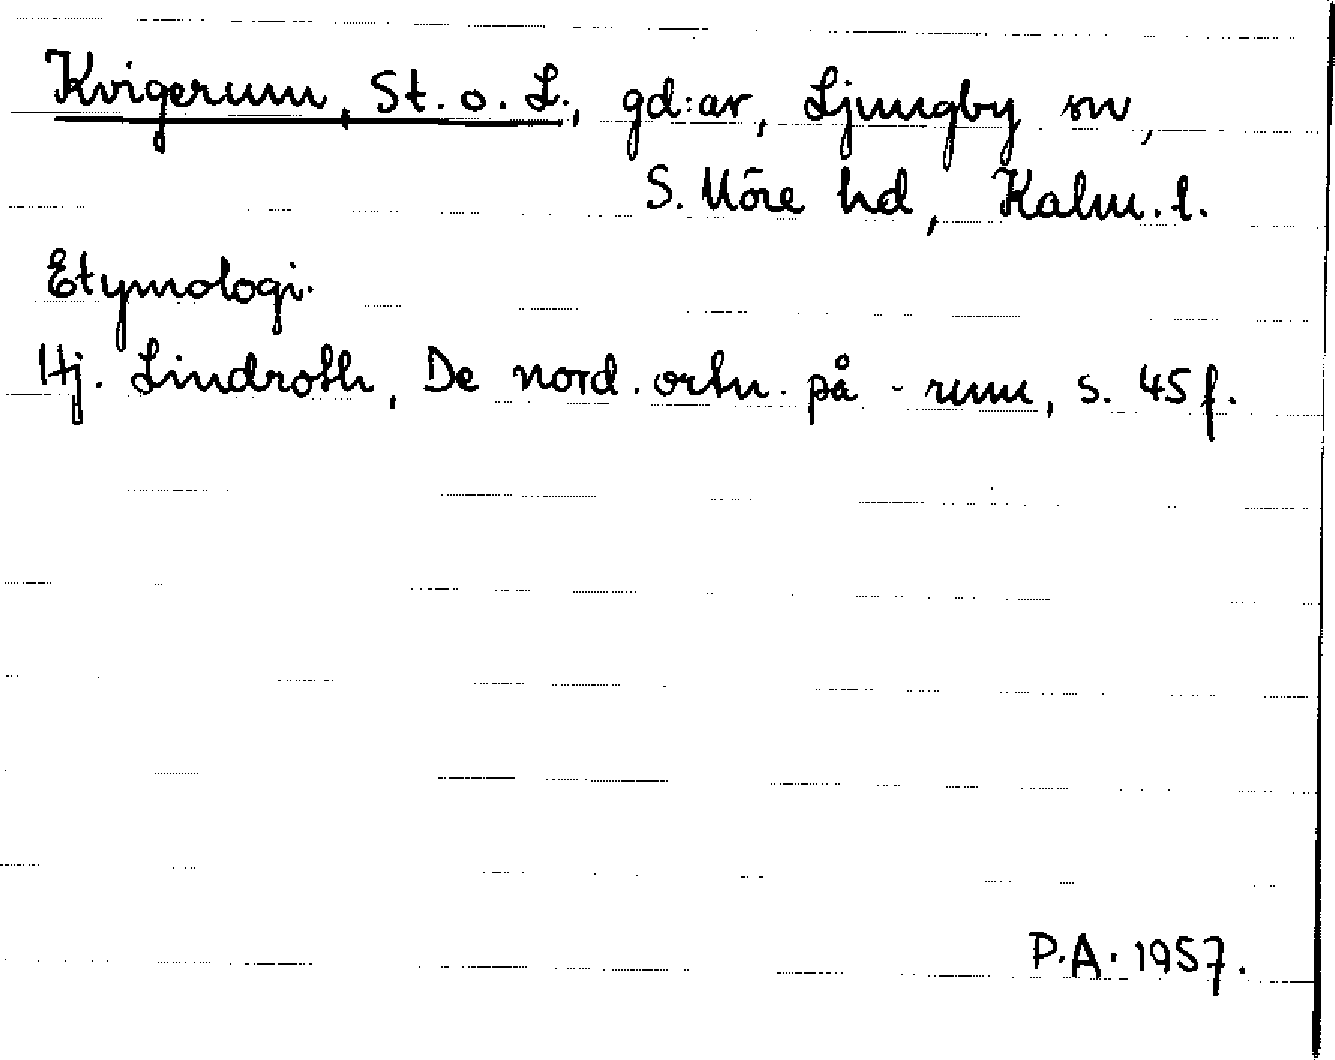 Kvigerum, St. o. L., gd:ar, Ljungby sn,
S. Möre hd, Kalm. l.
Etymologi.
Hj. Lindroth, De nord. ortn. på -rum, s. 45 f.
P.A. 1957.